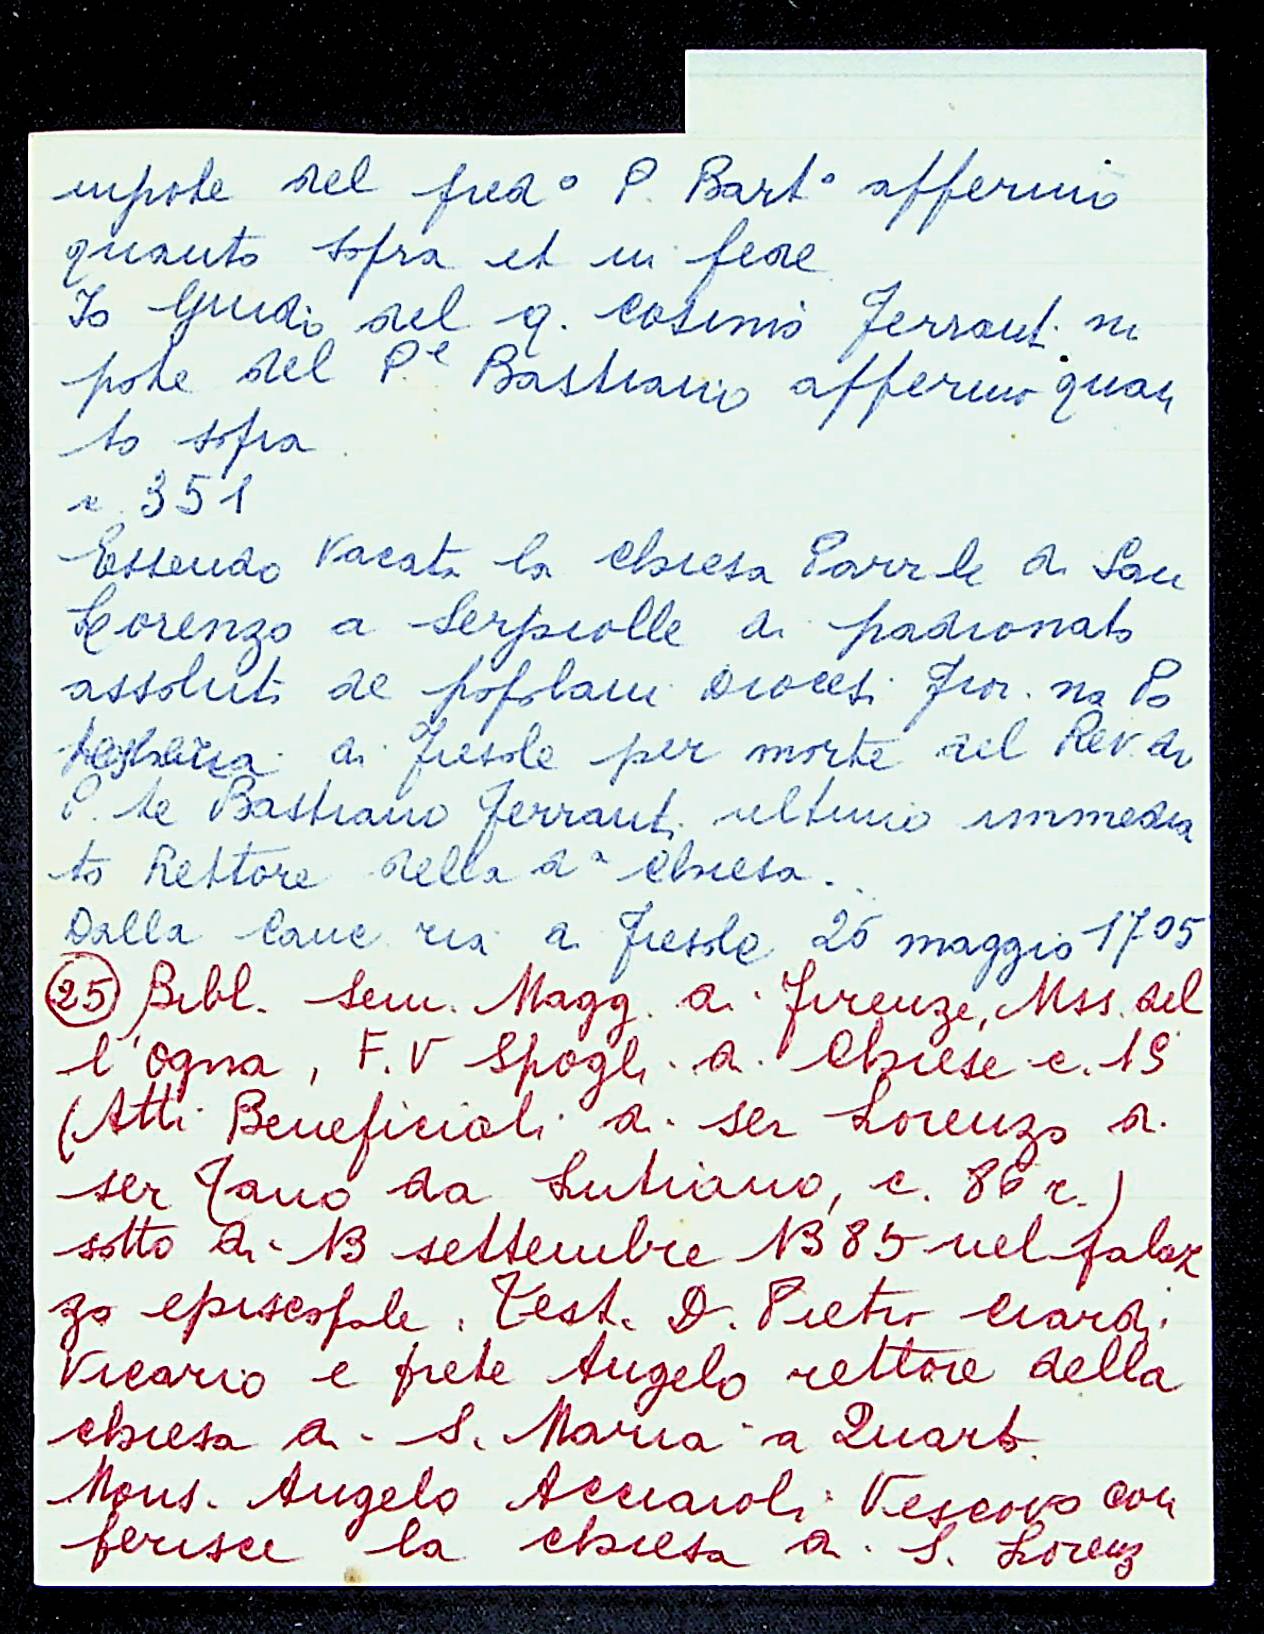 nipote del pred° P. Bart° affermo
quanto sopra et in fede
Io Guido del q. Cosimo Ferranti ni
pote del P.e Bastiano affermo quan
to sopra
c. 351
Essendo Vacata la chiesa Parr le di San
Lorenzo a Serpiolle di padronato
assoluti de popolani Diocesi Fior. na Po
di Fiesole per morte del Rev. do
P. te Bastiano Ferranti ultimo immedia
to Rettore della da Chiesa.
Dalla Canc ria di Fiesole 26 maggio 1705
(25) Bibl. Sem. Magg. di Firenze, Mss. del
l'Ogna, F. V Spogli di Chiese c. 19
(Atti Beneficiali di ser Lorenzo di
ser Tano da Lutiano, c. 86 r.)
sotto di 13 settembre 1385 nel palaz
zo episcopale. Test. D. Pietro Ciardi
Vicario e prete Angelo rettore della
chiesa di S. Maria a Quarto.
Mons. Angelo Acciaroli Vescovo con
ferisce la chiesa di S. Lorenz